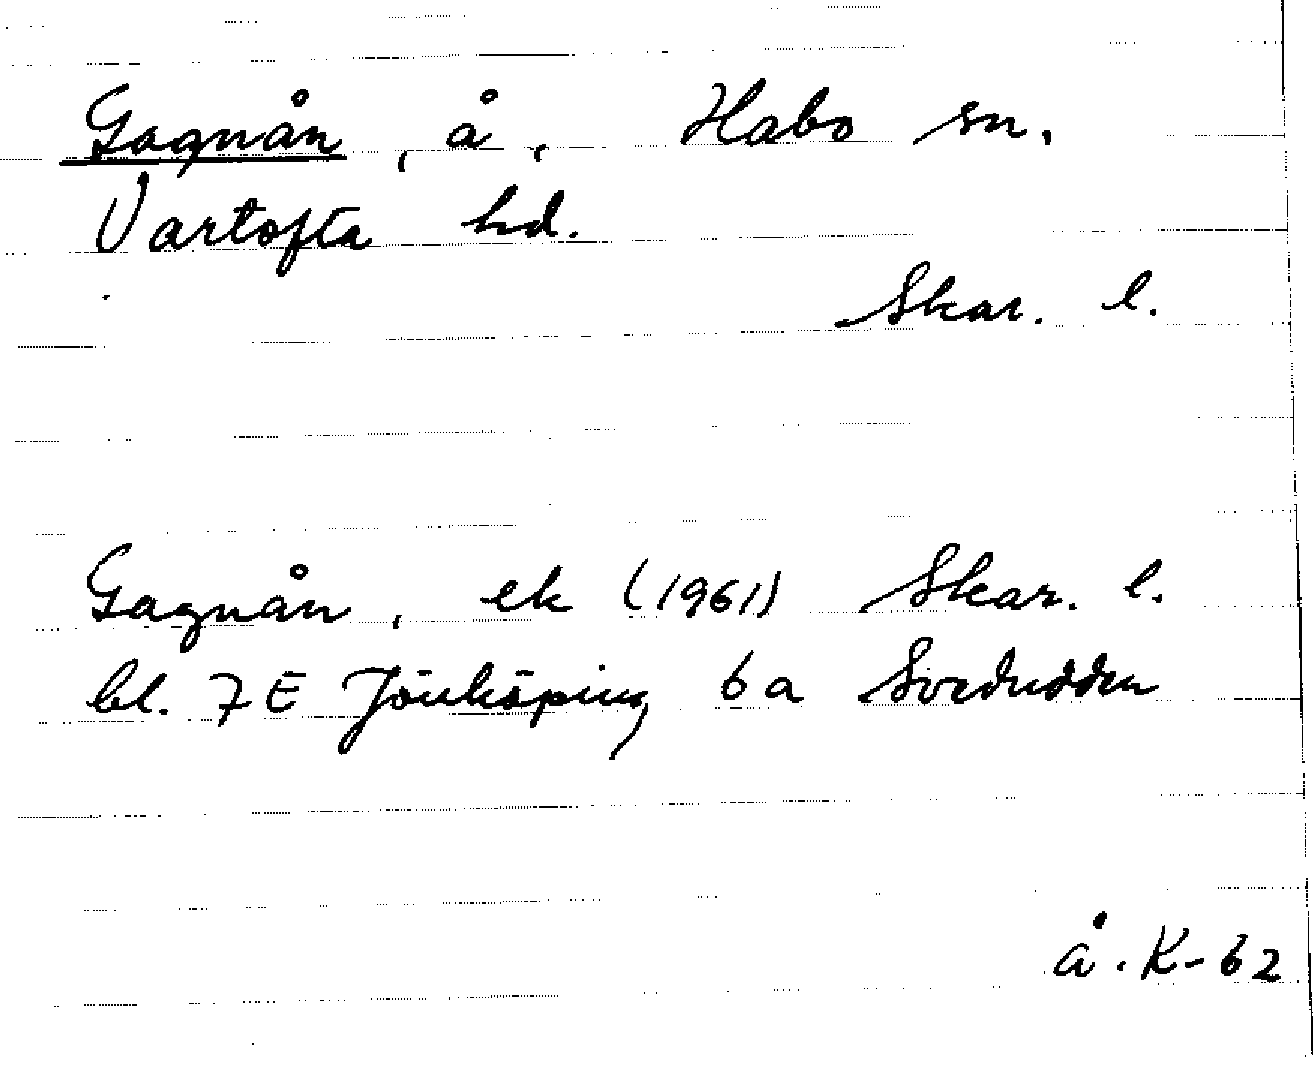 Gagnån, å, Habo sn.
Vartofta hd.
Skar. l.
Gagnån, ek (1961) Skar. l.
bl. 7E Jönköping 6a Svedudden
å. K-62